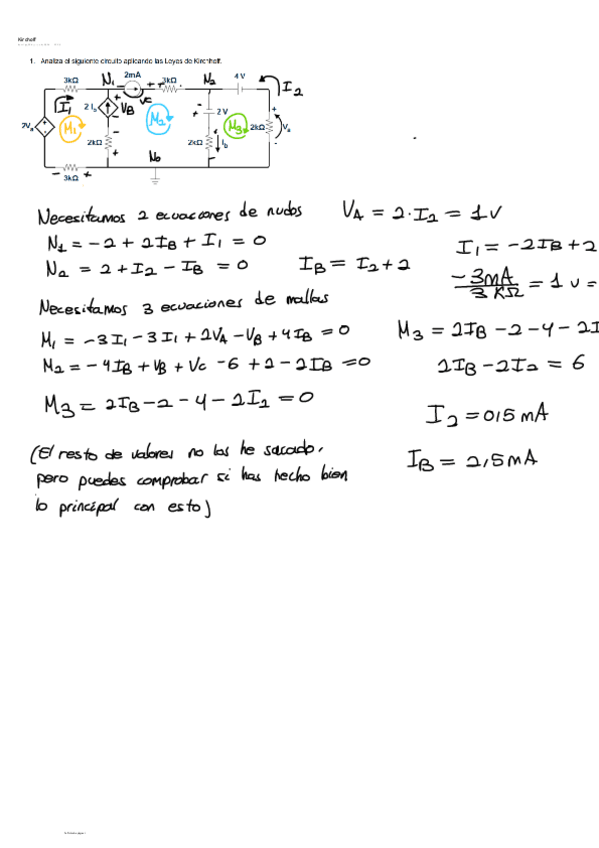 Kirchoff
1. Analiza el siguiente circuito aplicando las Leyes de Kirchhoff.
3kΩ N₁ 2mA 3kΩ N₂ 4 V I₂
I₁ 2 I_b V_B Vc 2 V
2V_a M₁ M₂ M₃ 2kΩ V_a
2kΩ 2kΩ I_b
N₀
3kΩ
Necesitamos 2 ecuaciones de nudos
V_A = 2·I₂ = 1V
N₁ = -2 + 2I_B + I₁ = 0
I₁ = -2I_B + 2
N₂ = 2 + I₂ - I_B = 0
I_B = I₂ + 2
-3mA / 3 KΩ = 1 V =
Necesitamos 3 ecuaciones de mallas
M₁ = -3I₁ - 3I₁ + 2V_A - V_B + 4I_B = 0
M₃ = 2I_B - 2 - 4 - 2I
M₂ = -4I_B + V_B + Vc - 6 + 2 - 2I_B = 0
2I_B - 2I₂ = 6
M₃ = 2I_B - 2 - 4 - 2I₂ = 0
I₂ = 0'5 mA
I_B = 2,5mA
(El resto de valores no los he sacado,
pero puedes comprobar si has hecho bien
lo principal con esto)